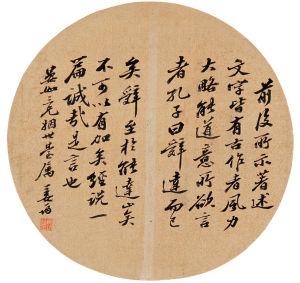 前后所示著述
文字皆有古作者風力
大略能道意所欲言
者孔子曰辭達而已
矣辭至於能達矣
不可以有加矣經說一
篇誠哉是言也